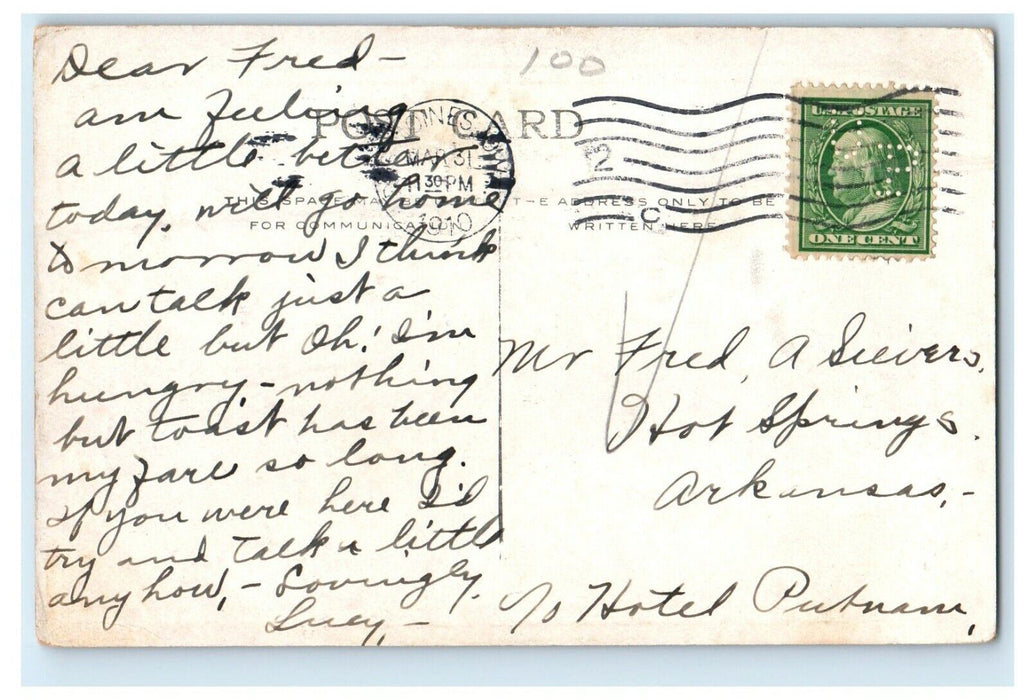 Dear Fred-
am feeling
a little better
today, will go home
tomorrow I think
can talk just a
little but Oh! I'm
hungry - nothing
but toast has been
my fare so long.
If you were here I'd
try and talk a little
anyhow, - Lovingly.
Lucy -
100
POST CARD
THIS SPACE MAY BE
FOR COMMUNICATION
THE ADDRESS ONLY TO BE
WRITTEN HERE
MOINES, IOWA
MAR 31
11 30 PM
1910
2
C
U.S. POSTAGE
ONE CENT
Mr Fred, A Sievers,
Hot Springs.
Arkansas, -
c/o Hotel Putnam,